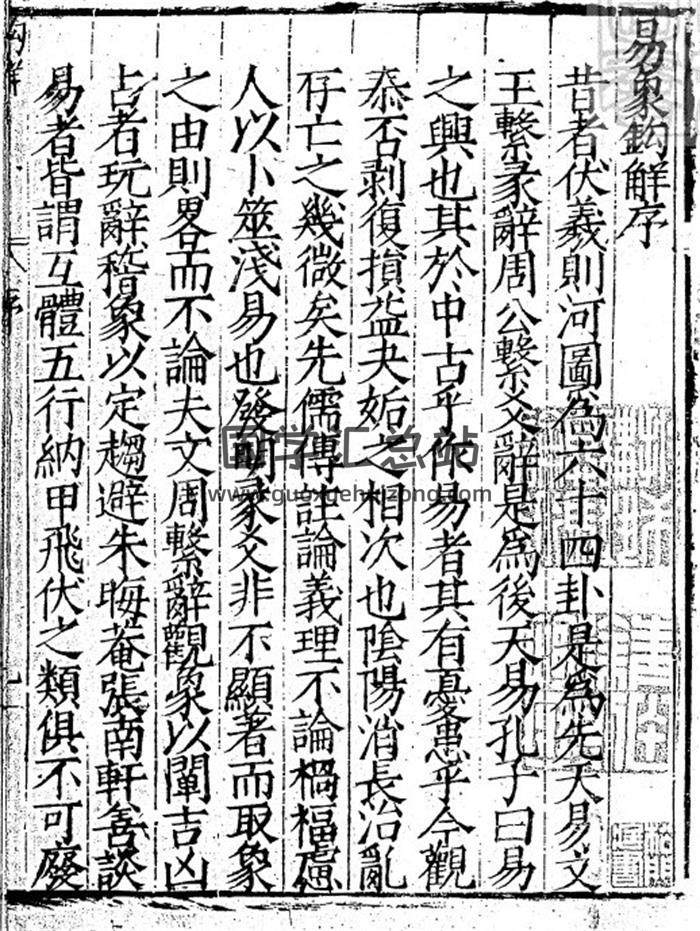 易象鈎解序
昔者伏羲則河圖爲六十四卦是爲先天易文
王繫彖辭周公繫爻辭是爲後天易孔子曰易
之興也其於中古乎作易者其有憂患乎今觀
泰否剥復損益夬姤之相次也陰陽消長治亂
存亡之幾微矣先儒傳註論義理不論禍福慮
人以卜筮淺易也發明彖爻非不顯著而取象
之由則畧而不論夫文周繫辭觀象以闡吉凶
占者玩辭稽象以定趨避朱晦菴張南軒善談
易者皆謂互體五行納甲飛伏之類俱不可廢
国学汇总站
www.guoxuehuizong.com